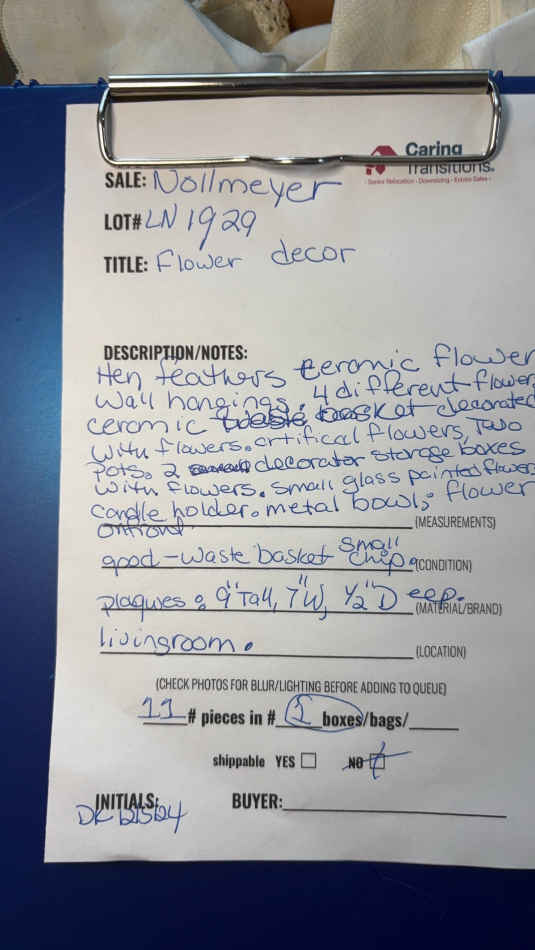 Caring
Transitions.
- Senior Relocation - Downsizing - Estate Sales -
SALE: Nollmeyer
LOT# LN 1929
TITLE: Flower decor
DESCRIPTION/NOTES:
Hen feathers ceramic flower
wall hangings. 4 different flower
ceramic waste basket decorated
with flowers. artifical flowers, Two
Pots. 2 decorator storage boxes
with flowers. small glass painted flowers
candle holder. metal bowl; flower
on front (MEASUREMENTS)
good-waste basket small chip. (CONDITION)
plaques: 9" Tall, 7" W, 1/2" Deep. (MATERIAL/BRAND)
livingroom. (LOCATION)
(CHECK PHOTOS FOR BLUR/LIGHTING BEFORE ADDING TO QUEUE)
11 # pieces in # 1 boxes/bags/
shippable YES NO
INITIALS: BUYER:
DK